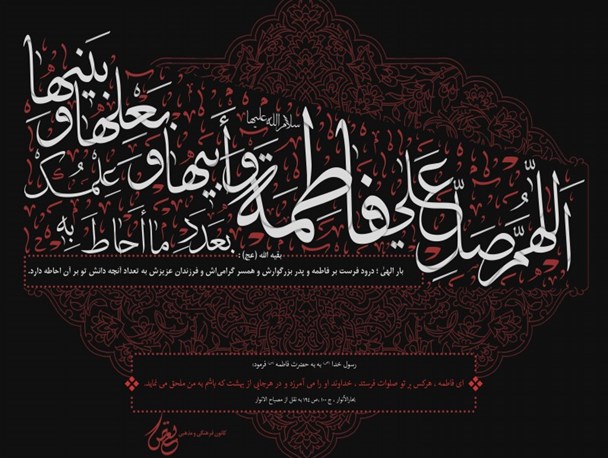 اَللّهُمَّ صَلِّ عَلی فاطمة وأبیها و بعلها و بنیها
سلام الله علیها
بعدد ما أحاط به علمک
بقیه الله (عج) :
بار الهیٰ ؛ درود فرست بر فاطمه و پدر بزرگوارش و همسر گرامی‌اش و فرزندان عزیزش به تعداد آنچه دانش تو بر آن احاطه دارد.
رسول خدا به به حضرت فاطمه فرمود:
ای فاطمه ، هرکس بر تو صلوات فرستد ، خداوند او را می آمرزد و در هرجایی از بهشت که باشم به من ملحق می نماید.
بحارالأنوار ، ج ۱۰۰ ،ص ۱۹٤ به نقل از مصباح الانوار
کانون فرهنگی و مذهبی